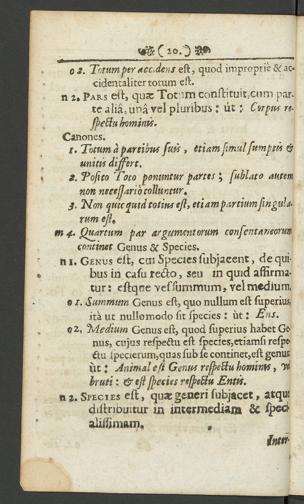 (20.)
o 2. Totum per accidens est, quod impropriè & ac-
cidentaliter totum est.
n 2. PARS est, quæ Totum constituit, cum par-
te aliâ, unâ vel pluribus: ùt: Corpus re-
spectu hominis.
Canones.
1. Totum à partibus suis, etiam simul sumptis &
unitis differt.
2. Posito Toto ponuntur partes; sublato autem
non necessariò colluntur.
3. Non quicquid totius est, etiam partium singula-
rum est.
m 4. Quartum par argumentorum consentaneorum
continet Genus & Species.
n 1. GENUS est, cui Species subjacent, de qui-
bus in casu recto, seu in quid affirma-
tur: estque vel summum, vel medium.
o 1. Summum Genus est, quo nullum est superius,
ità ut nullo modo sit species: ùt: Ens.
o 2. Medium Genus est, quod superius habet Ge-
nus, cujus respectu est species, etiamsi respe-
ctu specierum, quas sub se continet, est genus
ùt: Animal est Genus respectu hominis,
bruti: & est species respectu Entis.
n 2. SPECIES est, quæ generi subjacet, atque
distribuitur in intermediam & speci-
alissimam.
Inter-